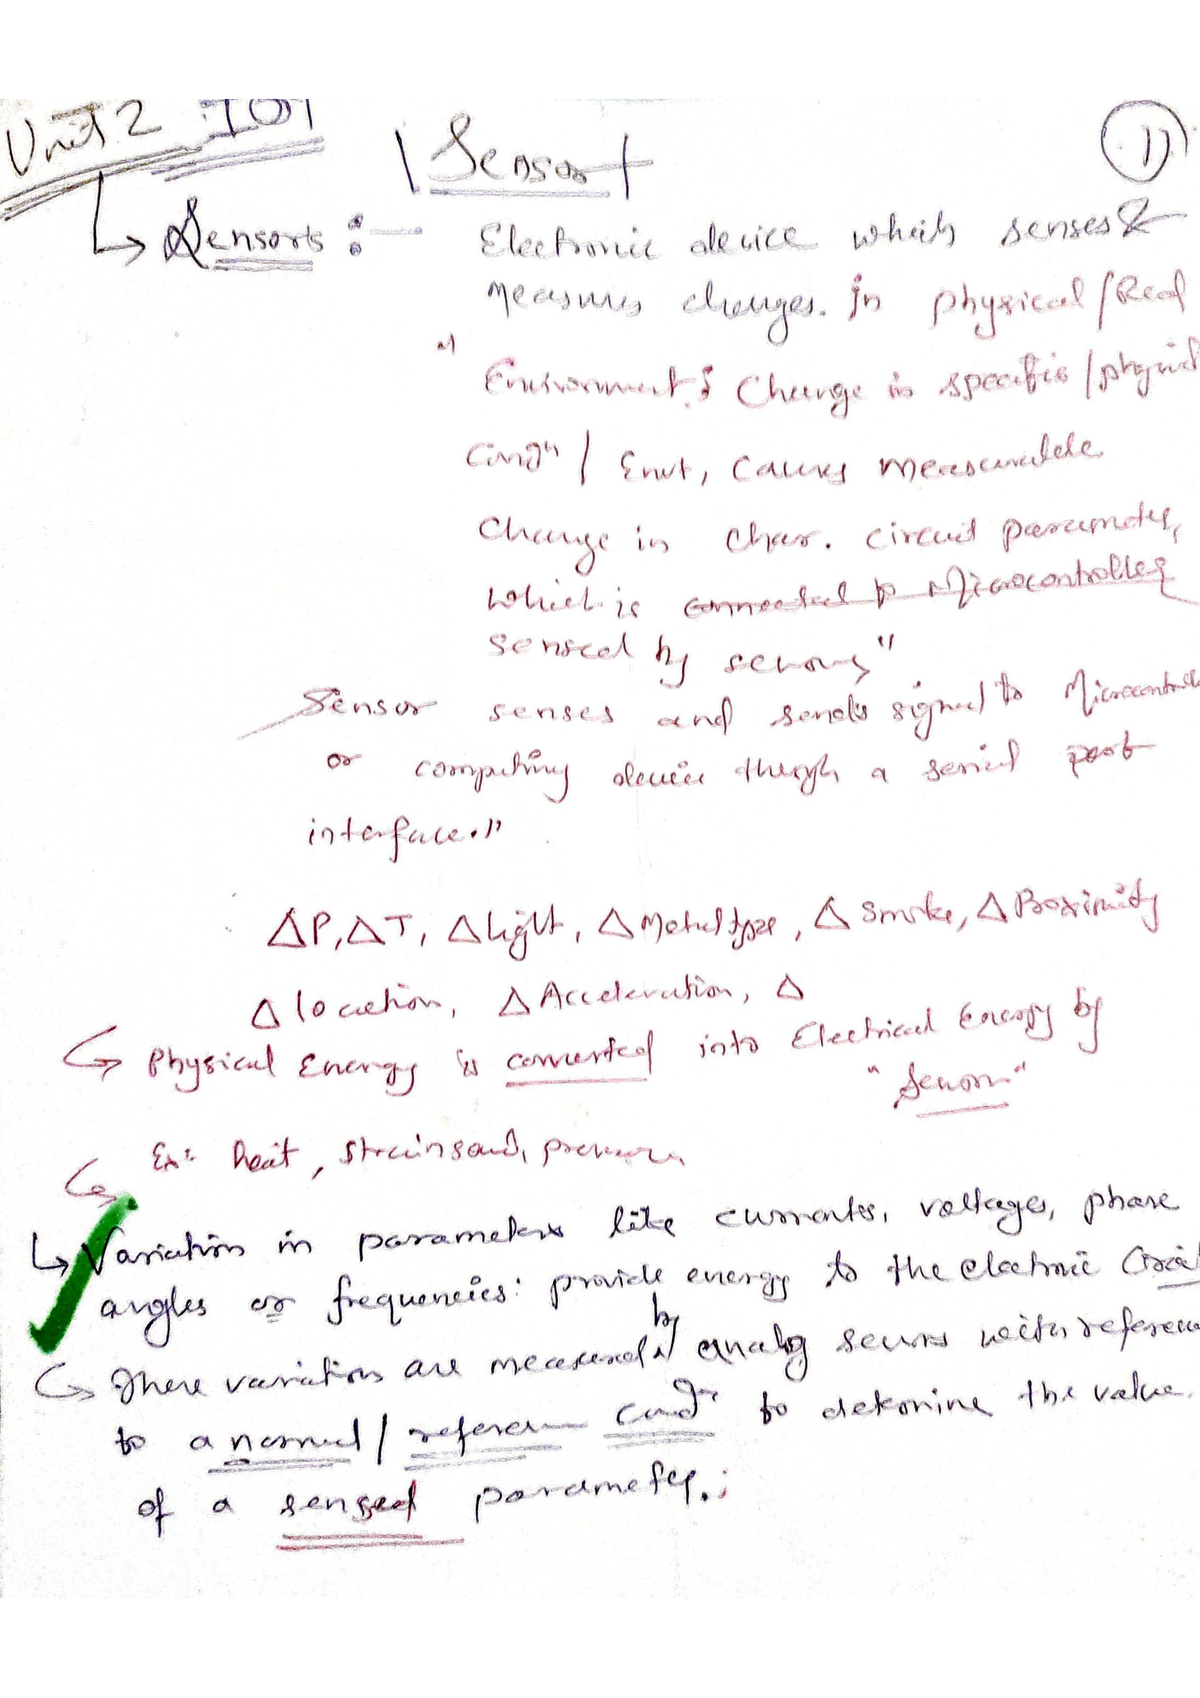 Unit 2 IOT
| Sensor |
1)
↳ Sensors :- Electronic device which senses &
measures changes. in physical / Real
" Environment; Change in specific / physical
Cond^n / Envt, causes measurable
change in char. circuit parameter,
which is connected to Microcontroller
sensed by sensors"
Sensor senses and sends signal to Microcontroll
or computing device through a serial port
interface."
ΔP, ΔT, Δ Light, Δ Metal type, Δ Smoke, Δ Proximity
Δ location, Δ Acceleration, Δ
↳ Physical Energy is converted into Electrical Energy by
"Sensor"
Ex: heat, strain sound, pressure
↳ Variation in parameters like currents, voltages, phase
angles or frequencies: provide energy to the electronic Circuit
by
↳ These variations are measured analog sensors with reference
to a normal / reference cond^n to determine the value
of a sensed parameter.;